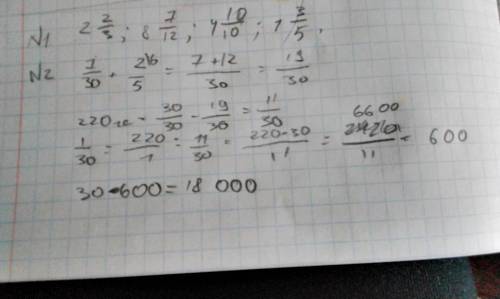 N1 2 2/3; 8 7/12; 4 10/10; 1 3/5.
N2 7/30 + 2\6/5 = 7+12/30 = 19/30
220 га - 30/30 - 19/30 = 11/30
1/30 = 220/1 : 11/30 = 220-30/11 = 6600/11 = 600
30-600=18 000